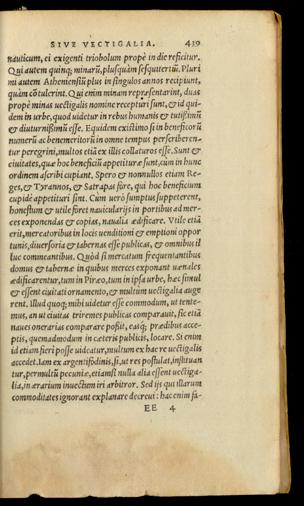 SIVE VECTIGALIA. 439
nauticum, ei exigenti triobolum propè in die reficitur.
Qui autem quinq; minarũ, plusquàm sesquitertiũ. Pluri
mi autem Atheniensiũ plus in singulos annos recipiunt,
quàm cõtulerint. Qui enim minam repræsentarint, duas
propè minas uectigalis nomine recepturi sunt, & id qui-
dem in urbe, quod uidetur in rebus humanis & tutißimũ
& diuturnißimũ esse. Equidem existimo si in beneficorũ
numerũ ac benemeritorũ in omne tempus perscriberen-
tur peregrini, multos etiã ex illis collaturos esse. Sunt &
ciuitates, quæ hoc beneficiũ appetituræ sunt, cùm in hunc
ordinem ascribi cupiant. Spero & nonnullos etiam Re-
ges, & Tyrannos, & Satrapas fore, qui hoc beneficium
cupidè appetituri sint. Cùm uerò sumptus suppeterent,
honestum & utile foret nauicularijs in portibus ad mer-
ces exponendas & copias, naualia ædificare. Vtile etiã
erit, mercatoribus in locis uenditioni & emptioni oppor
tunis, diuersoria & tabernas esse publicas, & omnibus il
luc commeantibus. Quòd si mercatum frequentantibus
domus & tabernæ in quibus merces exponant uænales
ædificarentur, tum in Piræo, tum in ipsa urbe, hæc simul
& essent ciuitati ornamento, & multum uectigalia auge
rent. Illud quoq; mihi uidetur esse commodum, ut tente-
mus, an ut ciuitas triremes publicas comparauit, sic etiã
naues onerarias comparare poßit, easq́; prædibus acce-
ptis, quemadmodum in cæteris publicis, locare. Si enim
id etiam fieri posse uideatur, multum ex hac re uectigalis
accedet. Iam ex argentifodinis, si, ut res postulat, instituan
tur, permultũ pecuniæ, etiamsi nulla alia essent uectiga-
lia, in ærarium inuectum iri arbitror. Sed ijs qui illarum
commoditates ignorant explanare decreui: hac enim fa-
EE 4